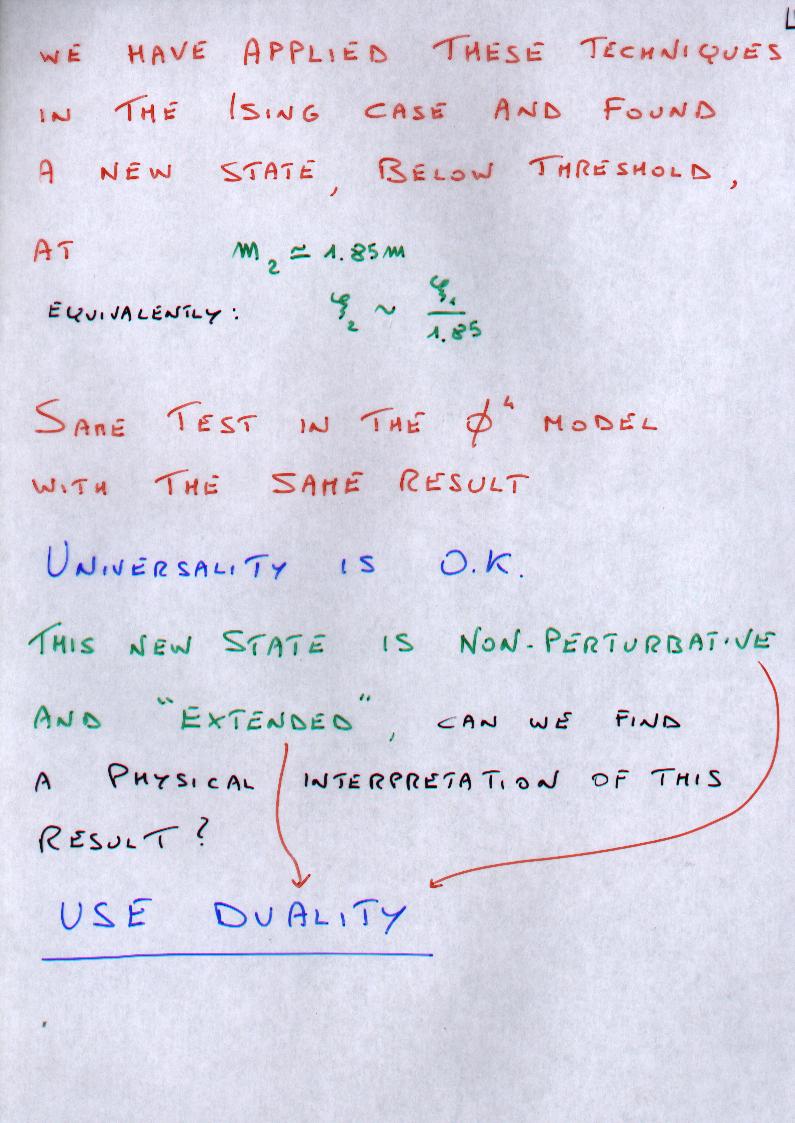 WE HAVE APPLIED THESE TECHNIQUES
IN THE ISING CASE AND FOUND
A NEW STATE, BELOW THRESHOLD,
AT m₂ ≃ 1.85m
EQUIVALENTLY: ξ₂ ~ ξ₁/1.85
SAME TEST IN THE ϕ⁴ MODEL
WITH THE SAME RESULT
UNIVERSALITY IS O.K.
THIS NEW STATE IS NON-PERTURBATIVE
AND "EXTENDED", CAN WE FIND
A PHYSICAL INTERPRETATION OF THIS
RESULT?
USE DUALITY